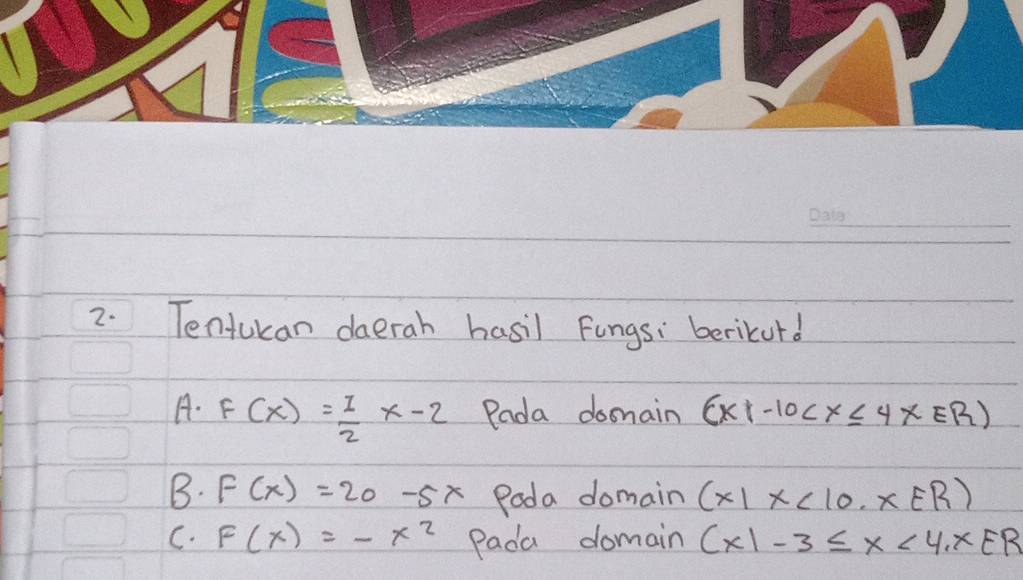 Date
2. Tentukan daerah hasil Fungsi berikut!
A. F(x) = 1/2 x - 2 Pada domain (x | -10 < x ≤ 4 x ∈ R)
B. F(x) = 20 - 5x Pada domain (x | x < 10. x ∈ R)
C. F(x) = - x² Pada domain (x | -3 ≤ x < 4. x ∈ R